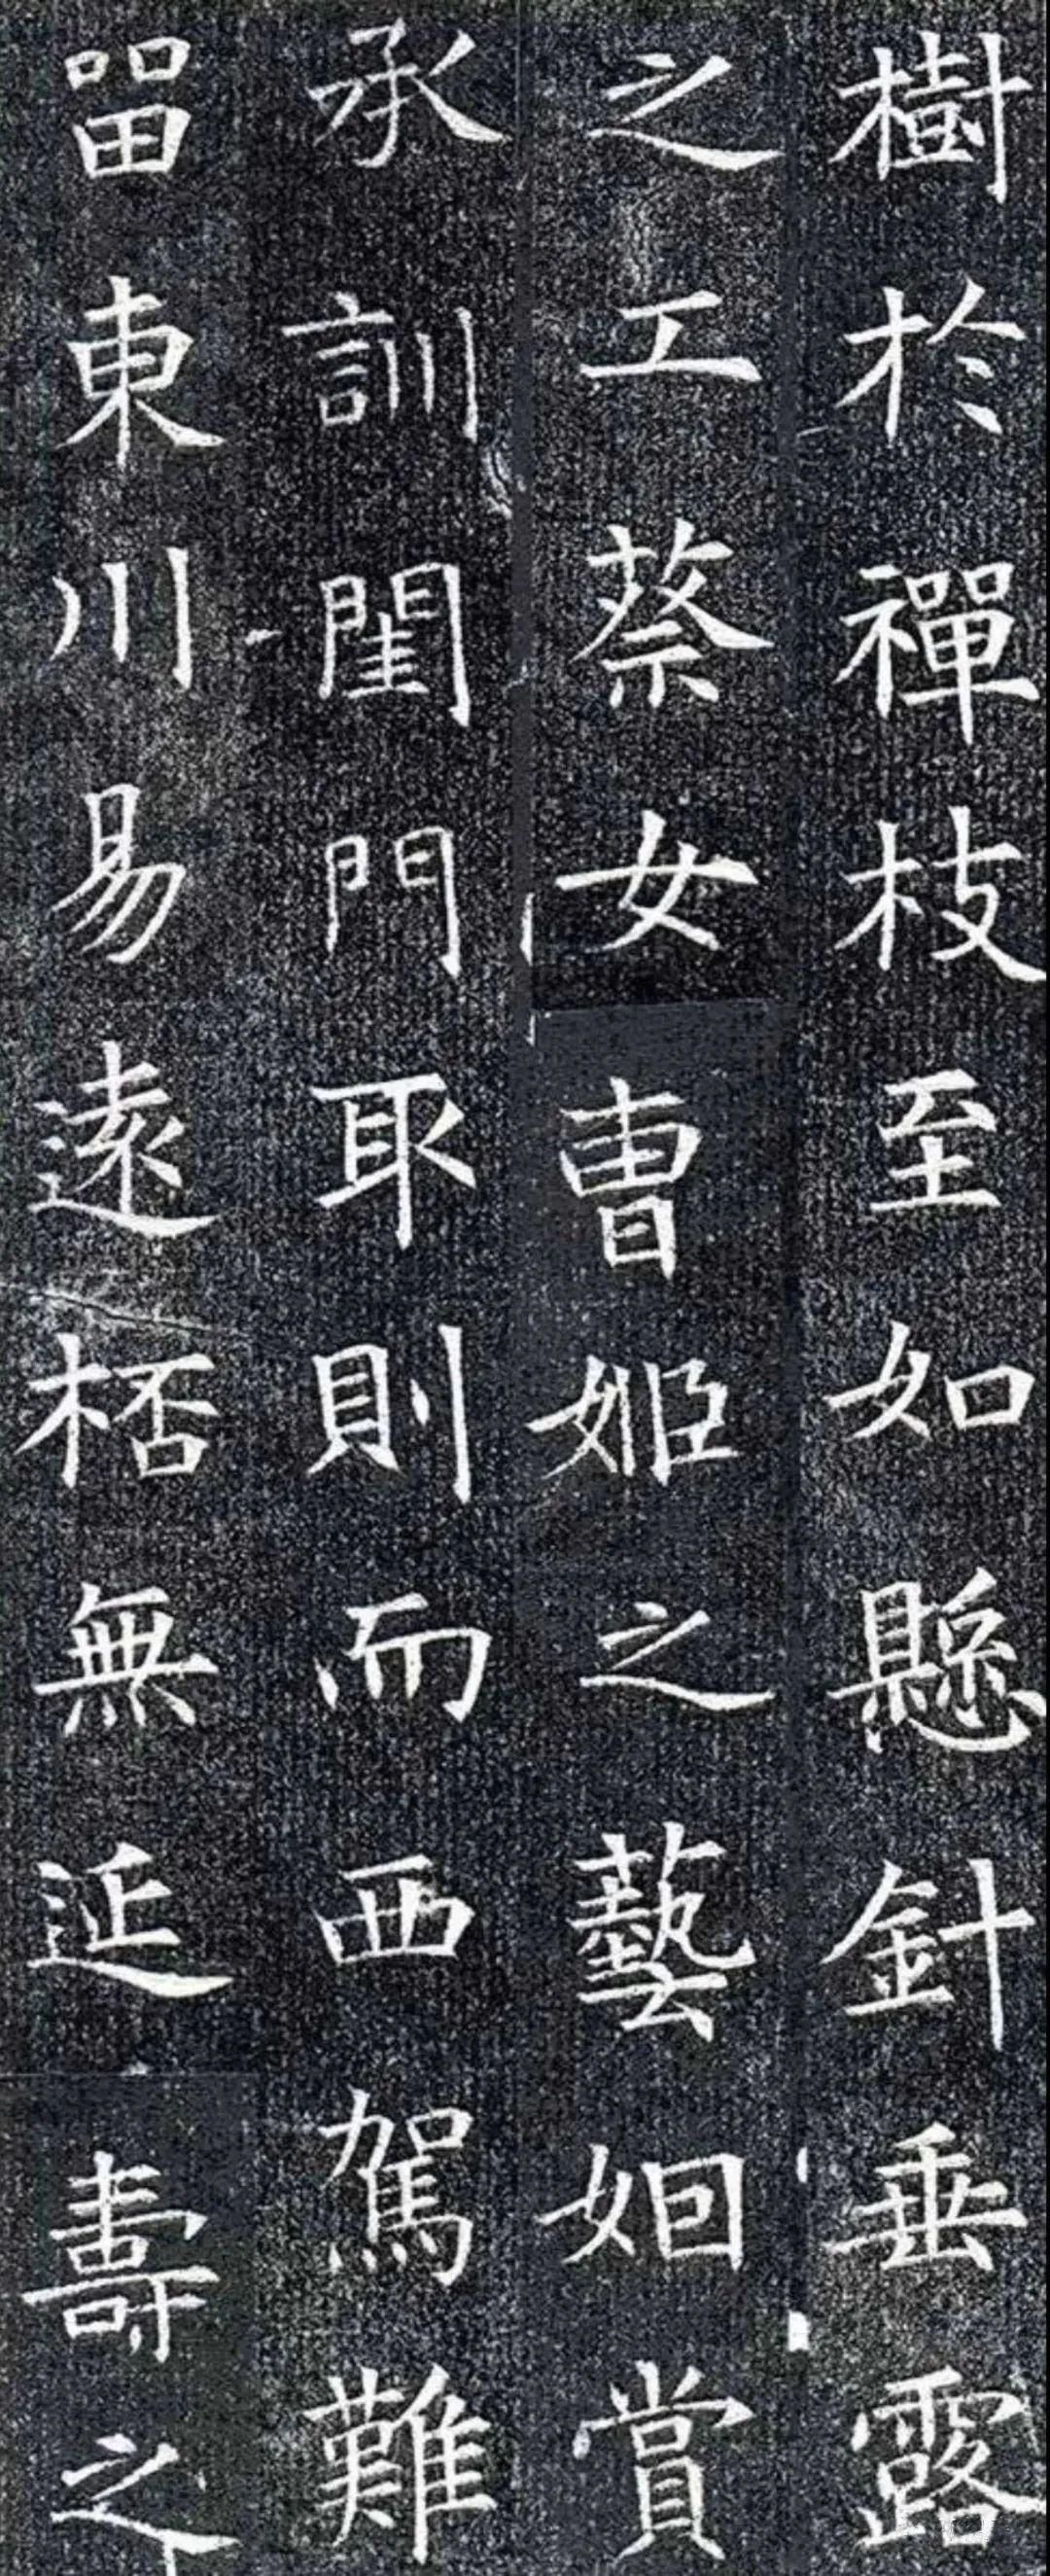 樹於禪枝至如懸針垂露
之工蔡女曹姬之藝姻賞
承訓閨門取則而西駕難
留東川易遠桮無延壽之